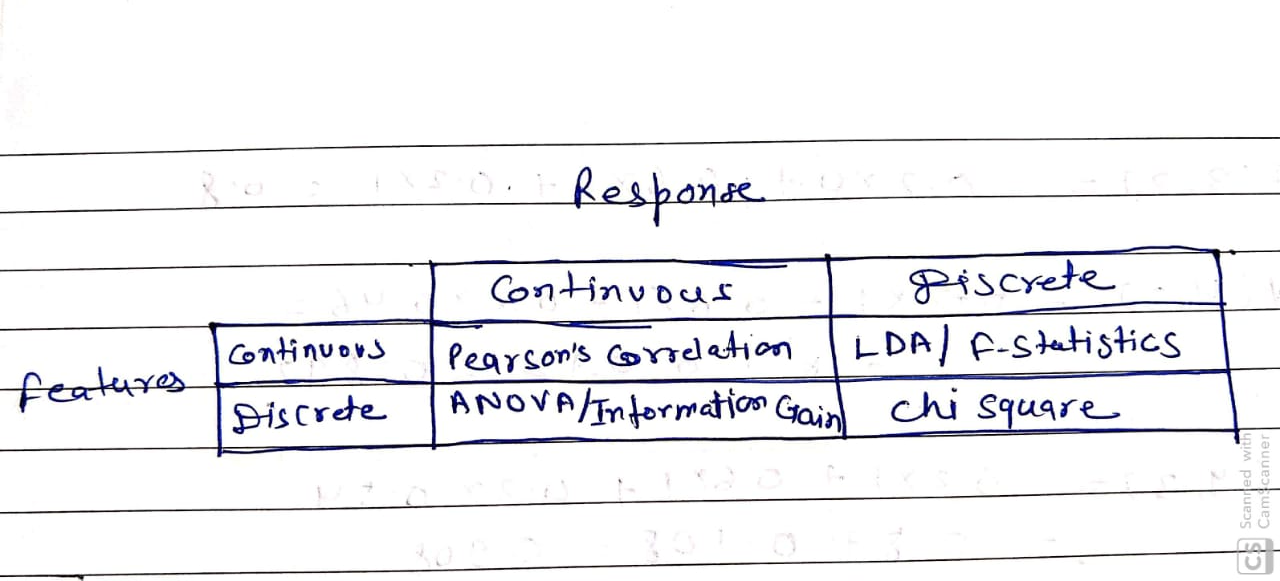 Response
Continuous Discrete
Features
Continuous Pearson's Correlation LDA/ F-Statistics
Discrete ANOVA/Information Gain chi square
CS Scanned with
CamScanner